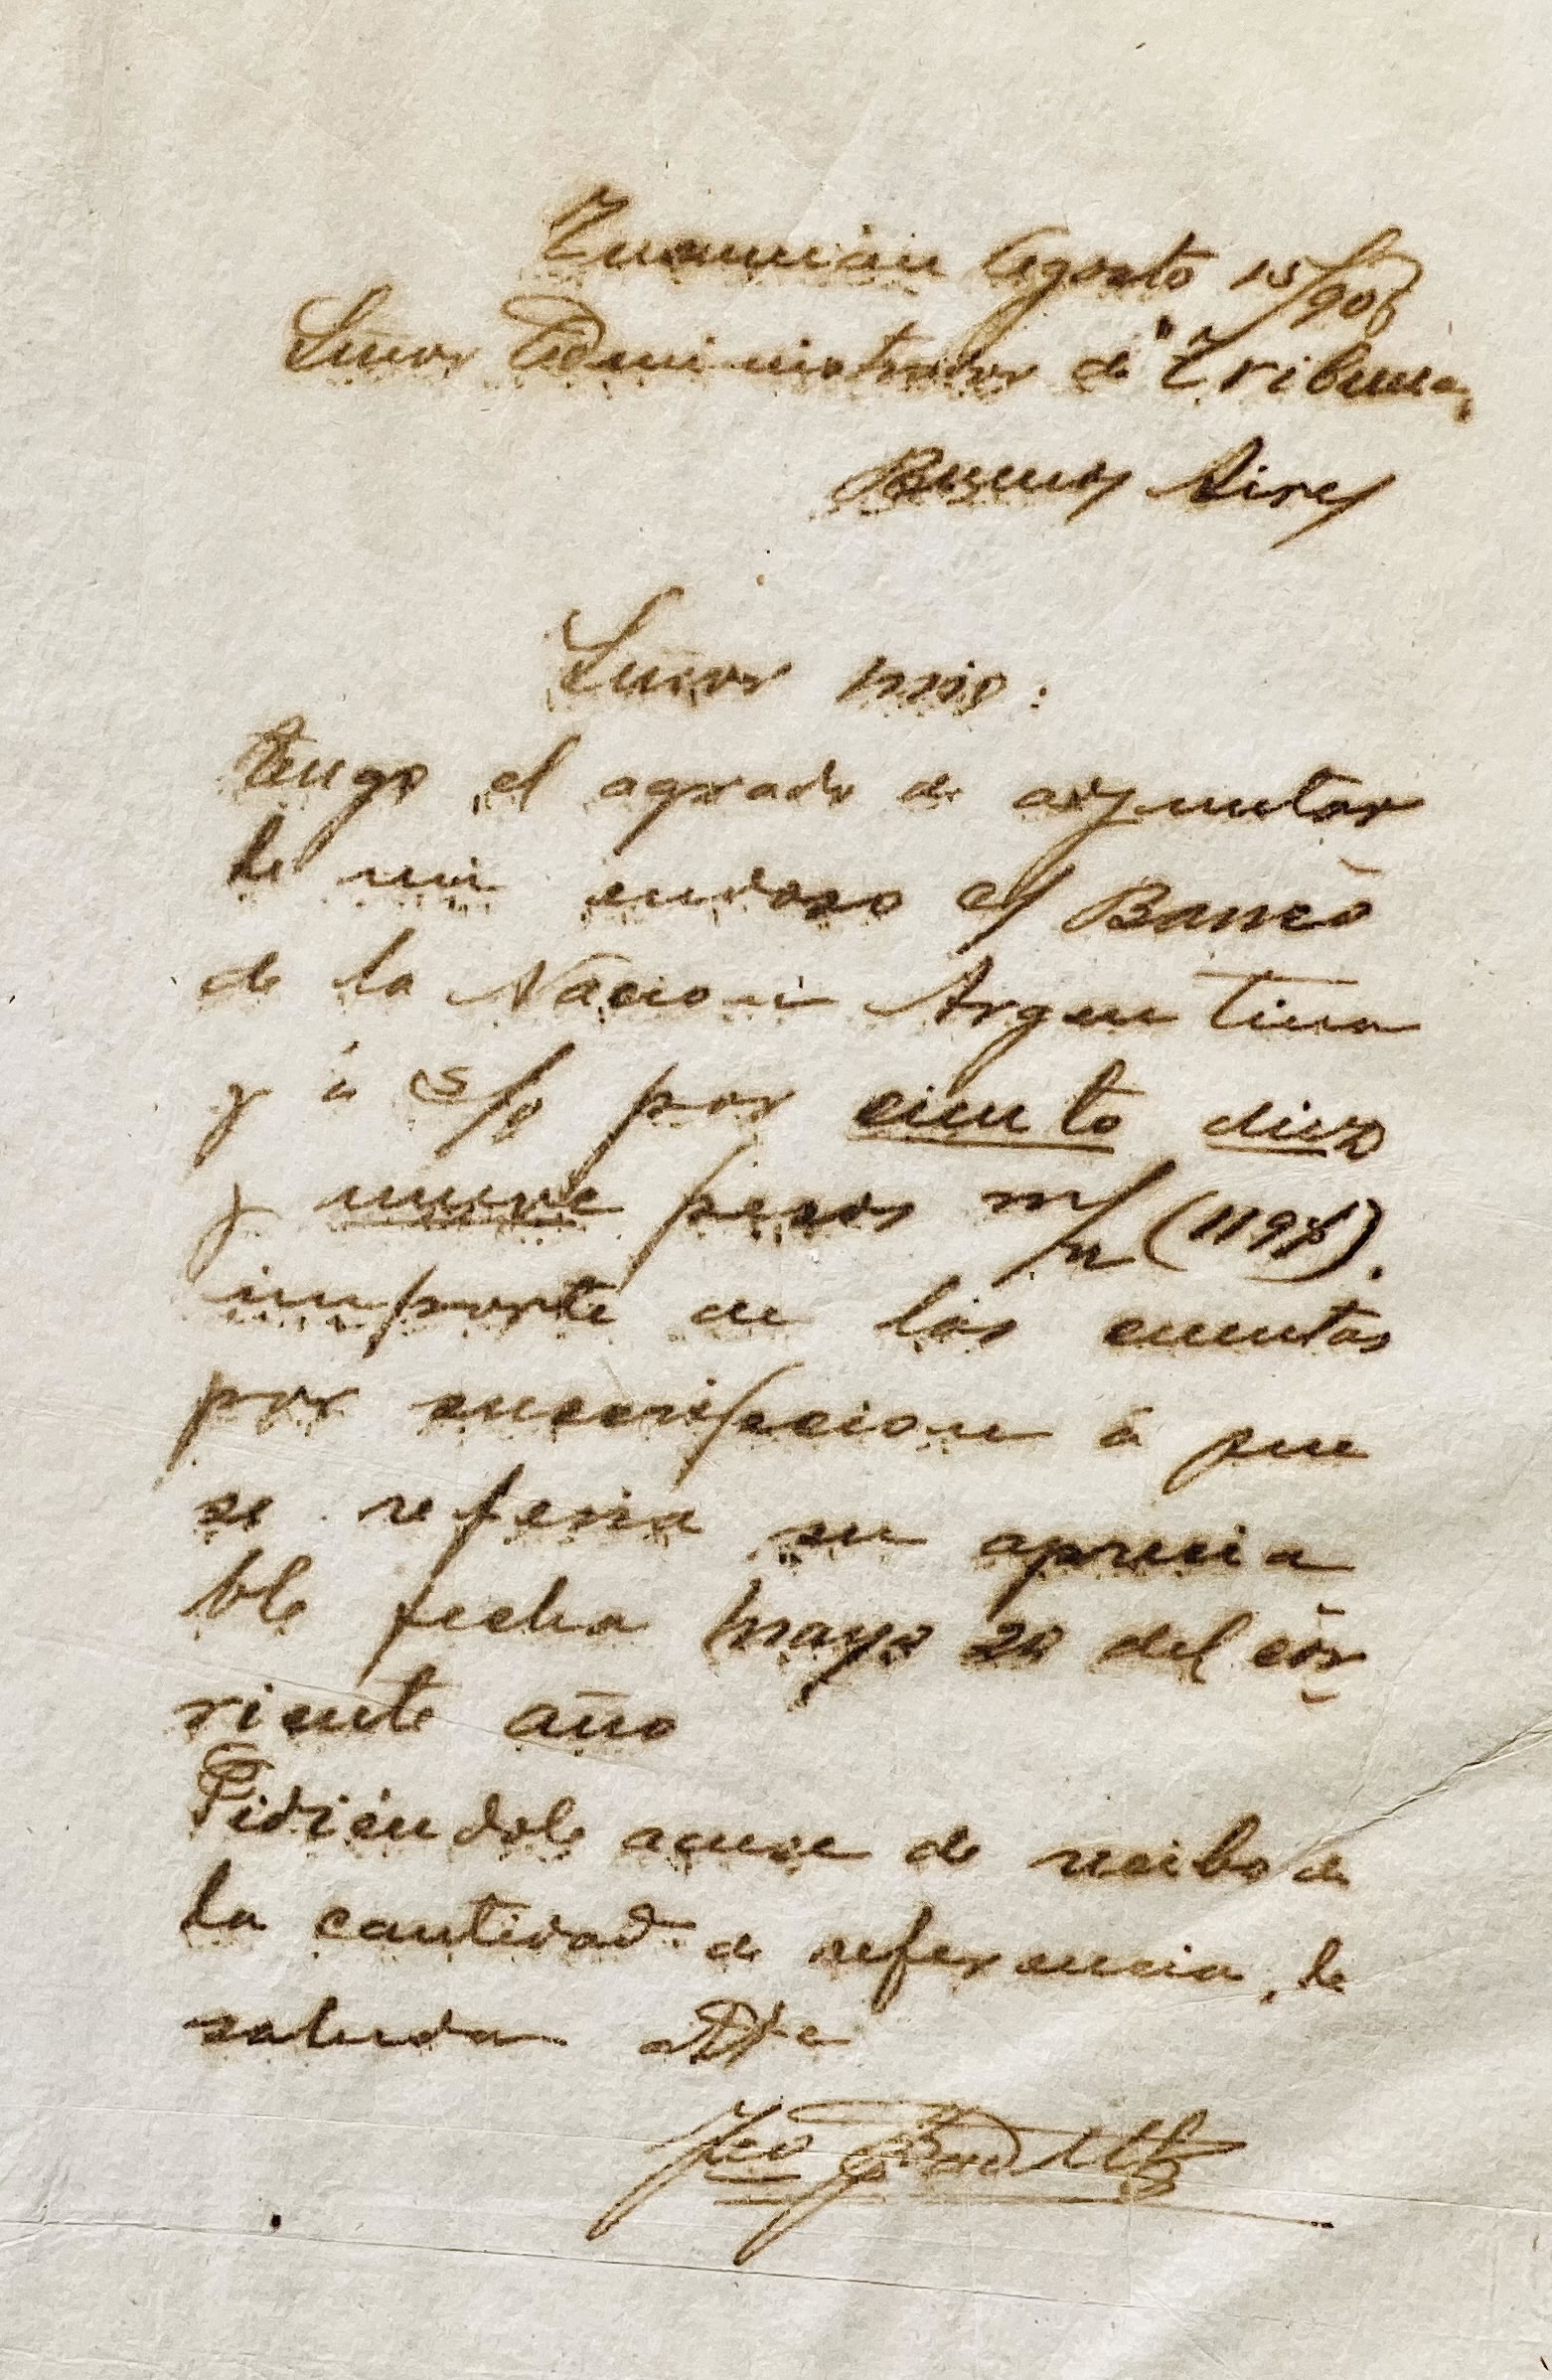 Tucumán Agosto 15/906
Señor Administrador de "Tribuna"
Buenos Aires
Señor mio:
Tengo el agrado de adjuntar
le un endoso c/ Banco
de la Nacion Argentina
y á s/o por ciento diez
y nueve pesos m/n (119$).
importe de las cuentas
por suscripcion á que
se referia su aprecia
ble fecha Mayo 28 del cor
riente año
Pidiéndole acuse de recibo de
la cantidad de referencia, le
saluda atte